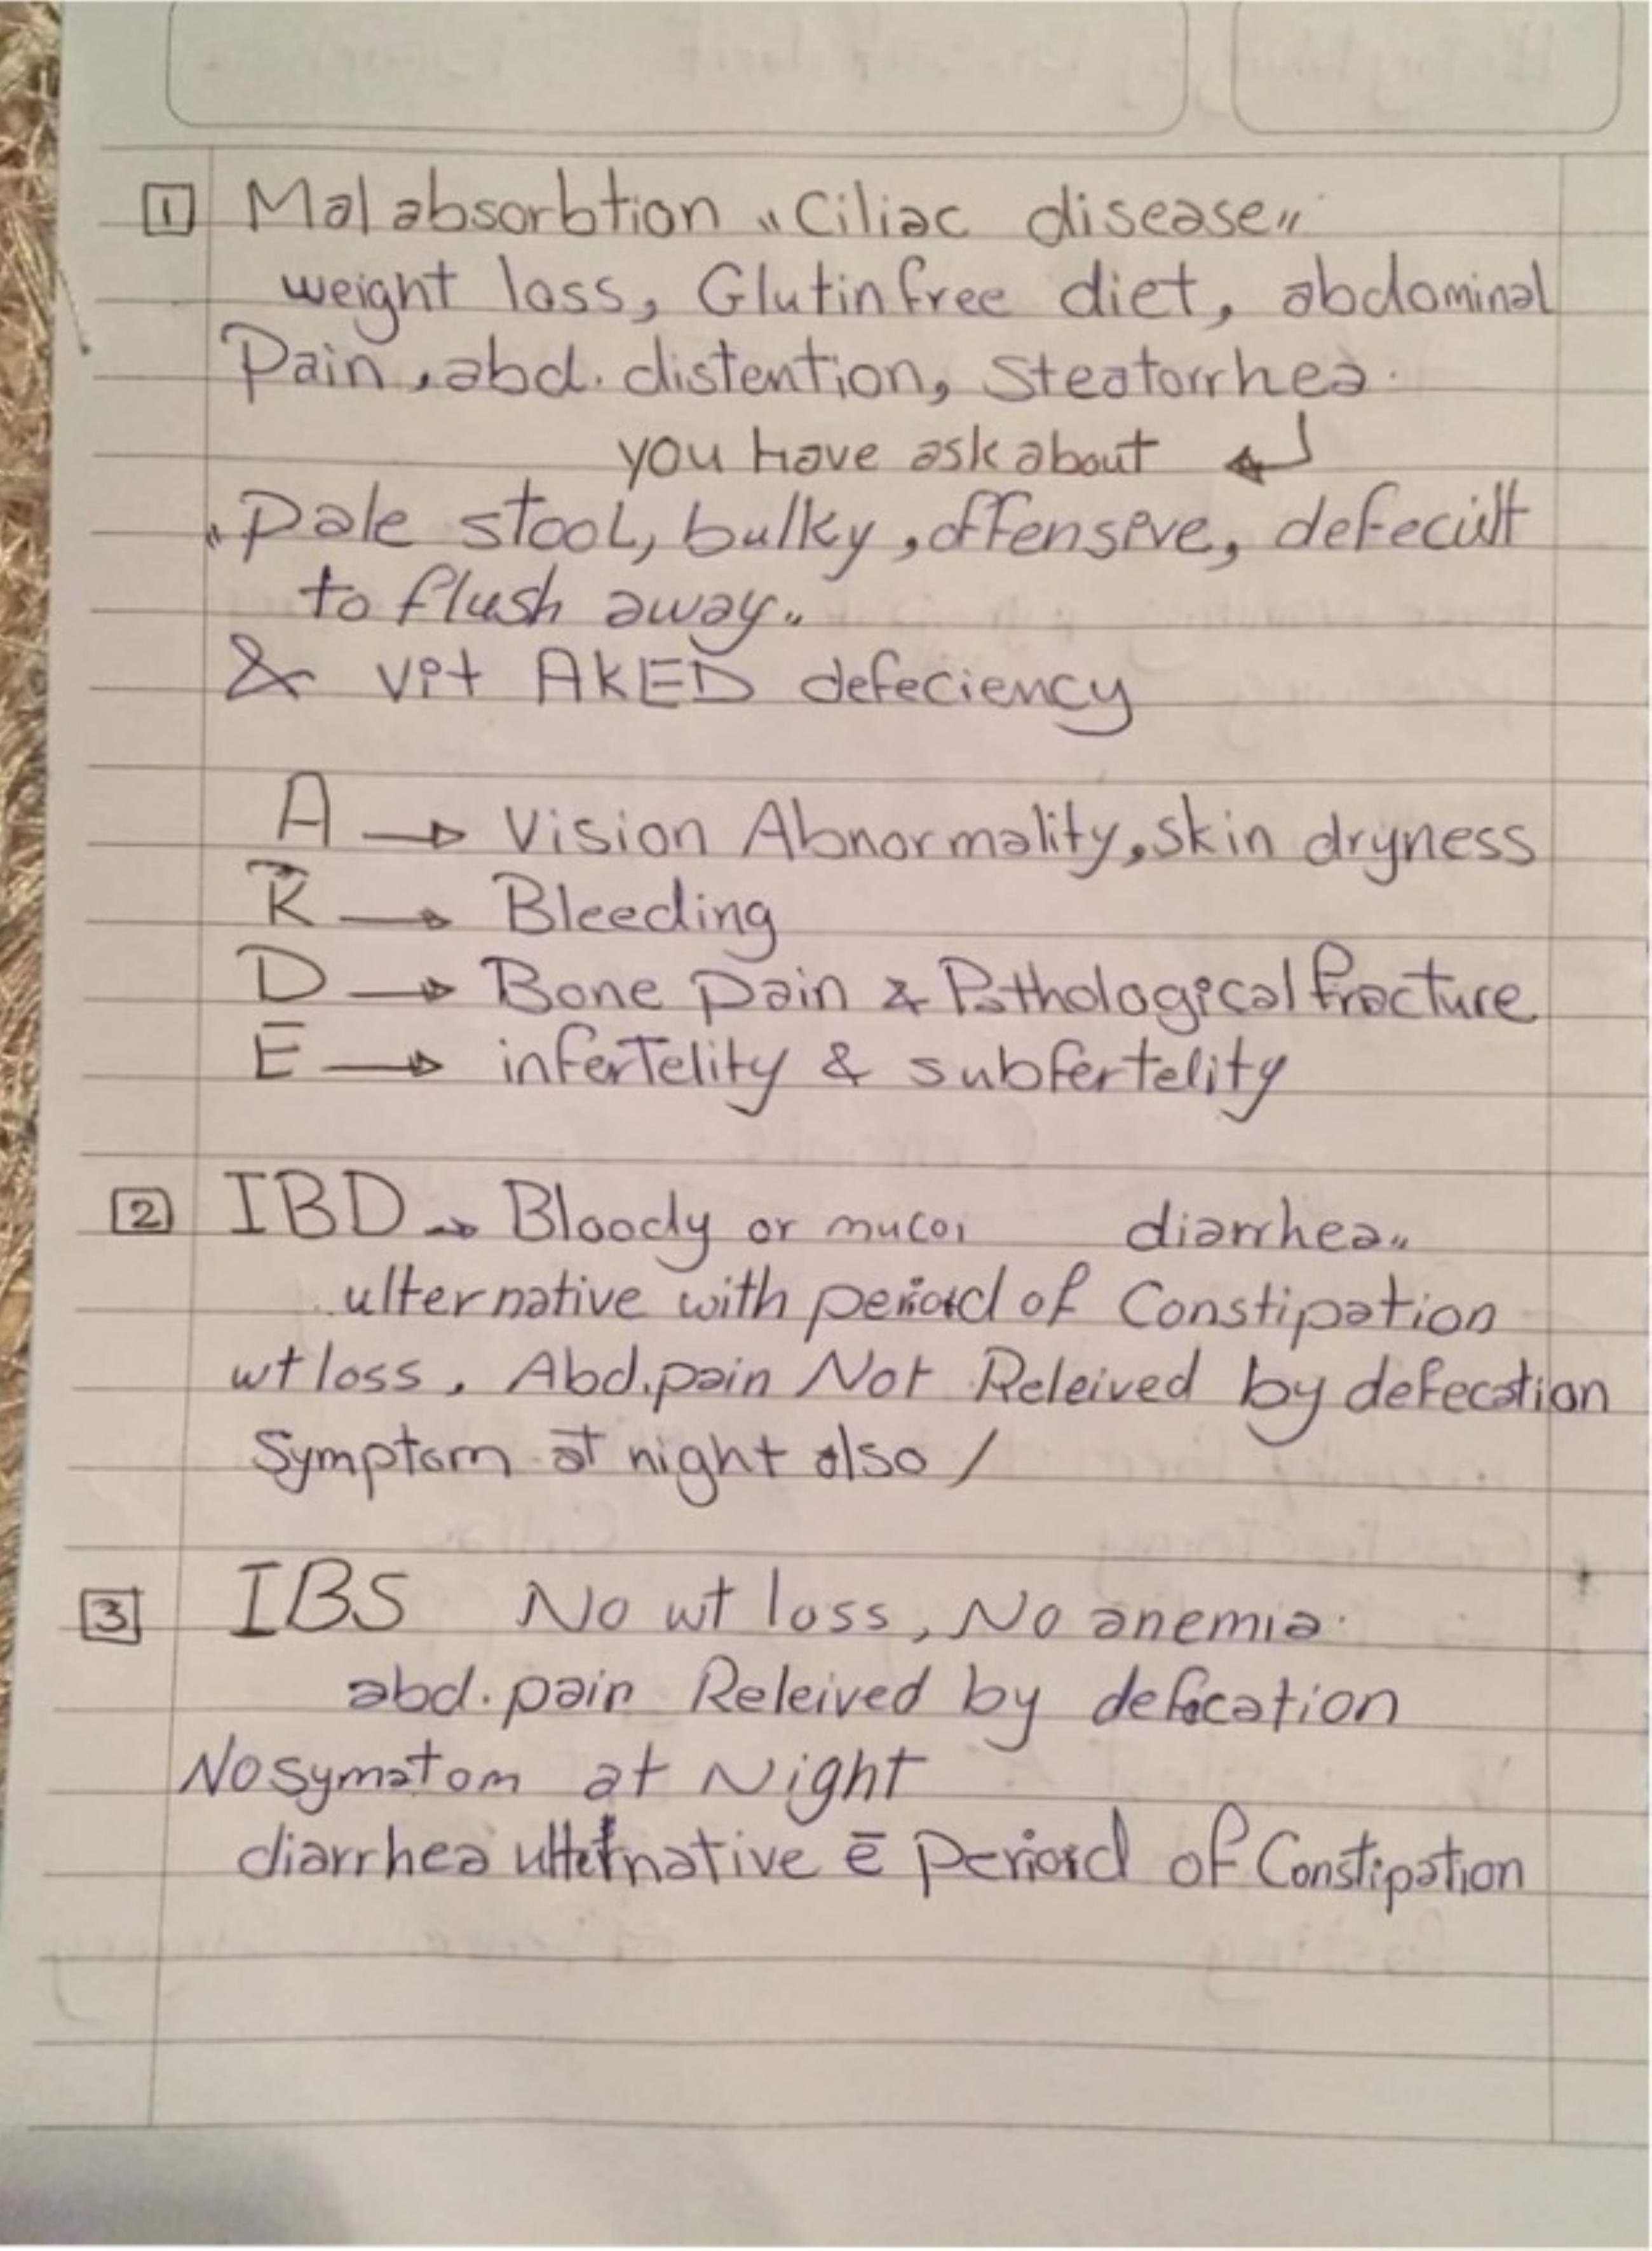 1 Malabsorbtion "Ciliac disease"
weight loss, Glutin free diet, abdominal
Pain, abd. distention, steatorrhea.
you have ask about ↵
"Pale stool, bulky, offensive, defecult
to flush away"
& vit AKED defeciency
A → Vision Abnormality, skin dryness
K → Bleeding
D → Bone Pain & Pathological fracture
E → infertelity & subfertelity
2 IBD → Bloody or diarrhea"
ulternative with period of Constipation
wt loss, Abd. pain Not Releived by defecation
Symptom at night also /
3 IBS No wt loss, No anemia.
abd. pain Releived by defecation
No symatom at Night
diarrhea ulternative c̄ period of Constipation